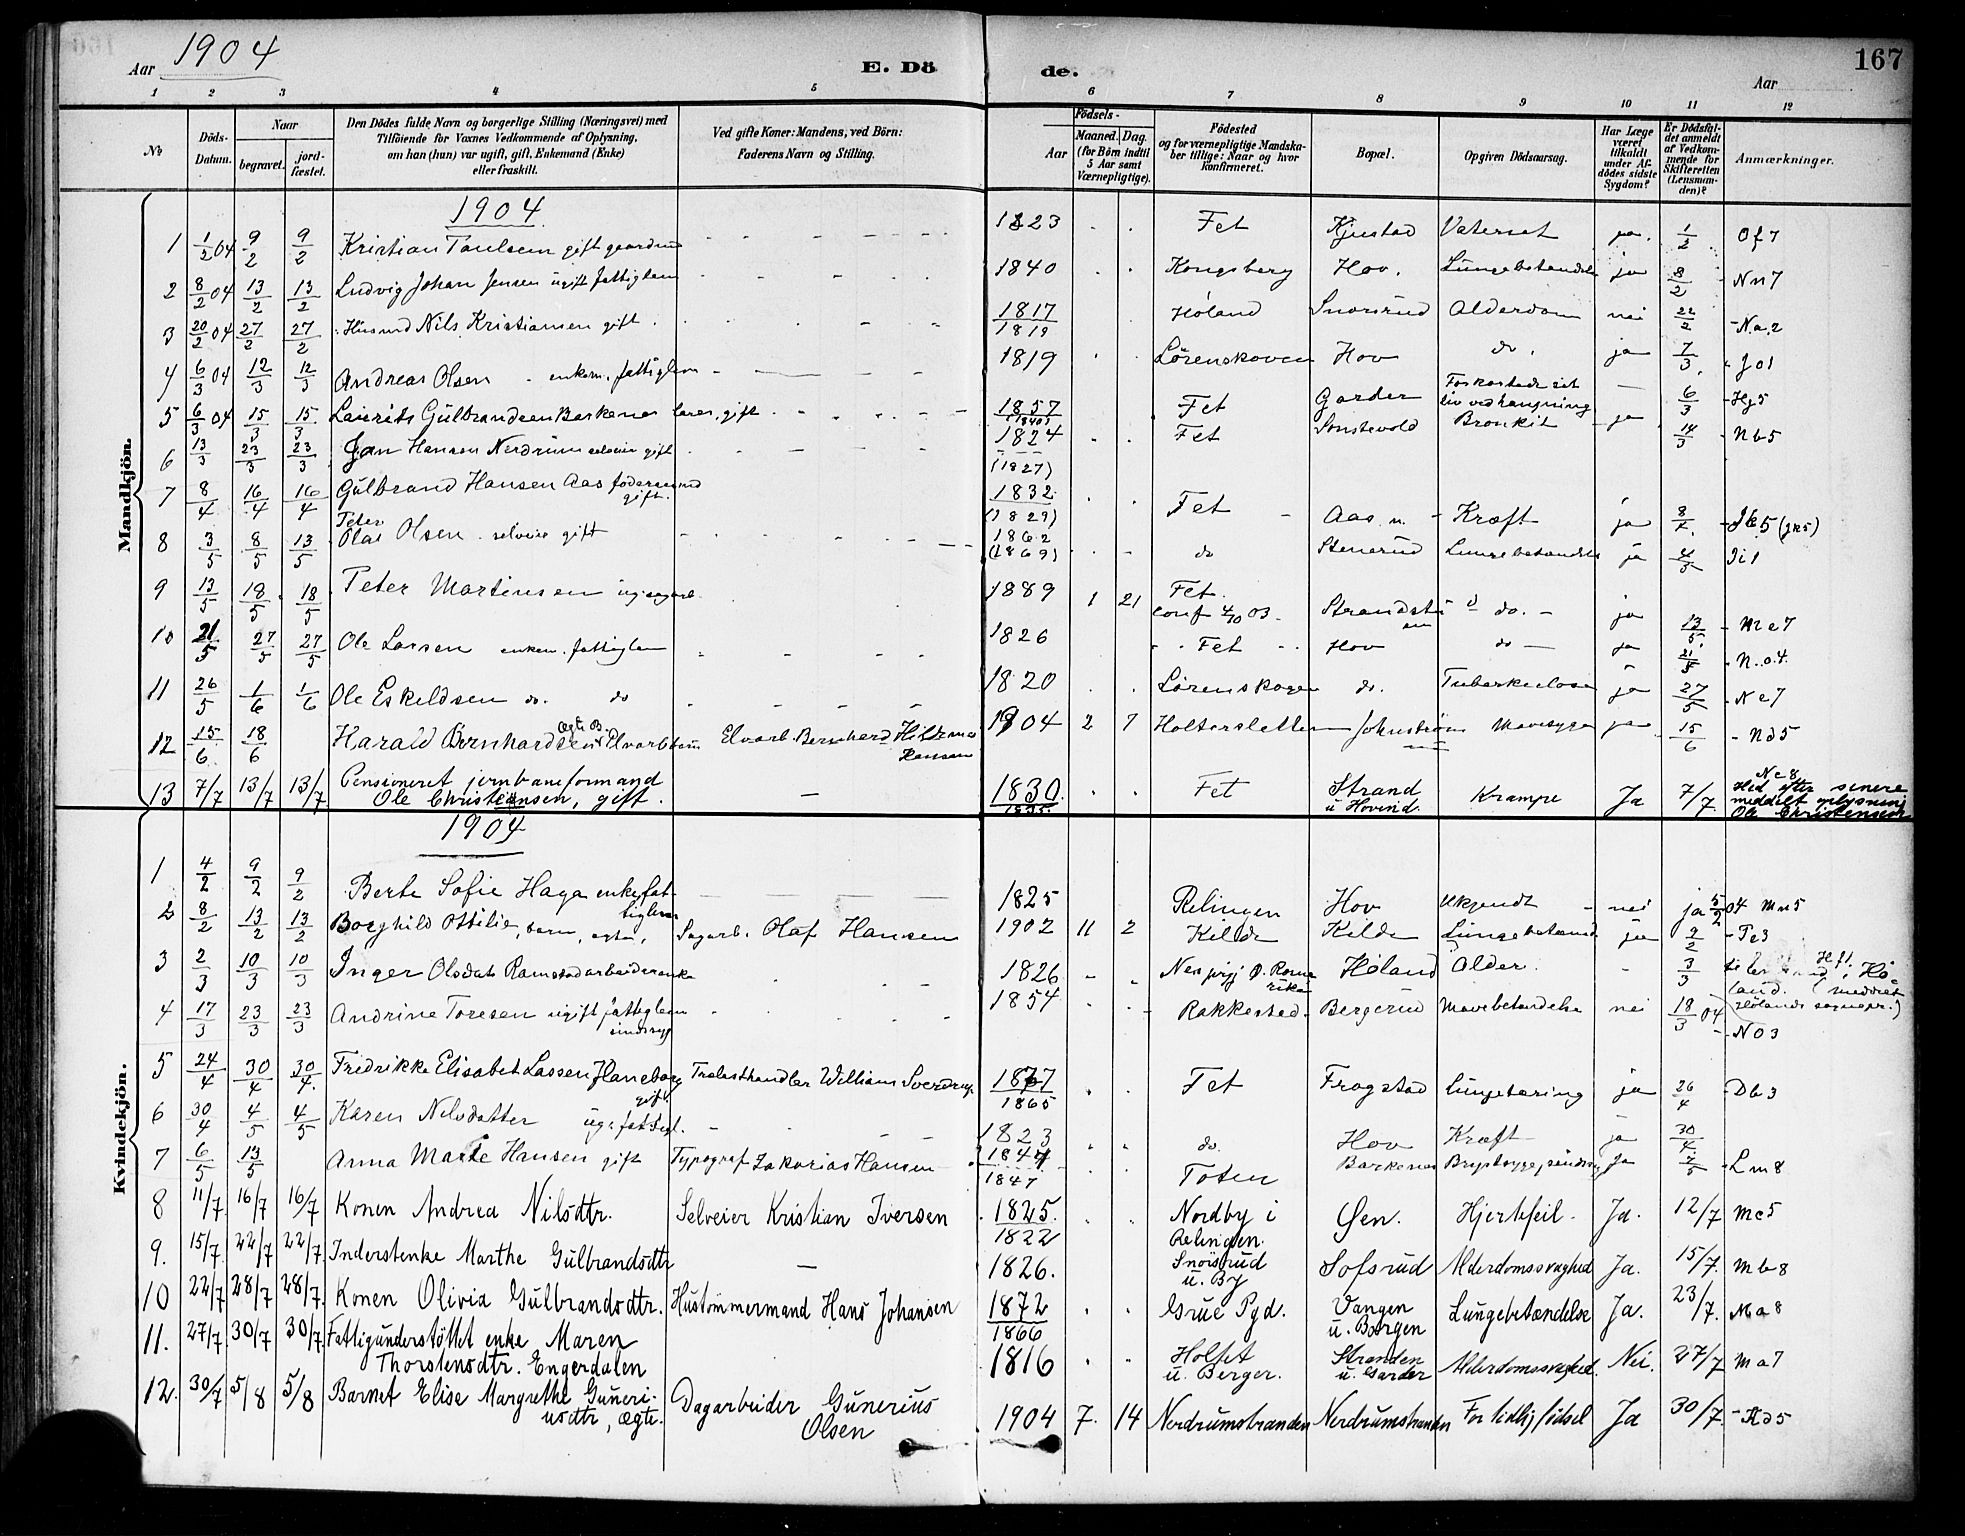 Aar 1904 E. Dö de. Aar 167
1 2 3 4 5 6 7 8 9 10 11 12
No Döds-Datum. Naar begravet. jord-fæstet. Den Dödes fulde Navn og borgerlige Stilling (Næringsvei) med Tilföiende for Voxnes Vedkommende af Oplysning, om han (hun) var ugift, gift, Enkemand (Enke) eller fraskilt. Ved gifte Koner: Mandens, ved Börn: Faderens Navn og Stilling. Födsels- Aar Maaned. Dag. (for Börn indtil 5 Aar samt Værnepligtige). Födested og for værnepligtige Mandskaber tillige: Naar og hvor konfirmeret. Bopæl. Opgiven Dödsaarsag. Har Læge været tilkaldt under Afdödes sidste Sygdom? Er Dödsfaldet anmeldt af Vedkommende for Skifteretten (Lensmanden)? Anmærkninger.
Mandkjön.
1904
1 1/2 04 9/2 9/2 Kristian Paulsen gift 1823 Fet Kjustad Vatersot ja. 1/2 Of7
2 8/2 04 13/2 13/2 Ludvig Johan Jensen ugift fattiglem 1840 Kongsberg Hov. Lungebetændelse ja 8/2 Nn7
3 20/2 04 27/2 27/2 Husmd Nils Kristiansen gift 1817 1819 Høland Snorsrud Alderdom nei 22/2 Na2
4 6/3 04 12/3 12/3 Andreas Olsen enkem. fattiglem 1819 Lörenskoven Hov do. ja 7/3 Jo1
5 6/3 04 15/3 15/3 Laurits Gulbrandsen Barkenes gift 1857 Fet Garder liv ved hængning 6/3 Hj5
6 13/3 23/3 23/3 Jan Hansen Nerdrum selveier gift 1824 (1827) Fet Sonstevold Bronkit ja 14/3 Nb5
7 8/4 16/4 16/4 Gulbrand Hansen Aas föderaadsmd gift. 1832 (1829) Fet Aas n. Kræft ja 8/4 Jk5 (jk5)
8 3/5 8/5 13/5 Peter Olai Olsen selveier gift 1862 (1869) do Stenerud Lungebetændelse ja 4/5 Ji1
9 13/5 18/5 18/5 Peter Martinsen 1889 1 21 Fet. conf 4/10 03. do. ja 13/5 Me7
10 21/5 27/5 27/5 Ole Larsen enkem. fattiglem 1826 Fet Hov do ja 21/5 N.o.4.
11 26/5 1/6 1/6 Ole Eskeldsen do. do 1820 Lörenskogen do. Tuberkulose ja 27/5 Ne7
12 15/6 18/6 Harald Bernhardsen Ægte B. Elvarb. Bernhard Hildmar Hansen 1904 2 7 Holtersletten Johnström Mavesyge ja 15/6 Nd5
13 7/7 13/7 13/7 Pensioneret jernbaneformand Ole Christensen, gift. 1830 1835. Fet Strand u Hovind. Krampe Ja 7/7. Nc8 Hed efter senere meddelt oplysning Ole Christensen
Kvindekjön.
1904
1 4/2 9/2 9/2 Berte Sofie Haga enke fattiglem 1825 Relingen Hov Ukjendt nei ja 5/2 04 Mn5
2 8/2 13/2 13/2 Borghild Ottilie, barn, ægte, Sagarb. Olaf Hansen 1902 11 2 Kilde Kilde Lungebetænd ja 9/2 Fe3
3 2/3 10/3 10/3 Inger Olsdat. Ramstad arbeiderenke 1826 Nes prgj Ø. Romerike Høland Alder. 3/3 (meddelt Hølands sognepr.)
4 17/3 23/3 23/3 Andrine Toresen ugift fattiglem sindssyg 1854 Rakkestad Bergerud Mavebetændelse nei 18/3 04 N03
5 24/4 30/4 30/4. Fredrikke Elisabet Lassen Haneborg gift Trælasthandler William Sverdrup 1867 1865 Fet Frogstad Lungetæring ja 26/4 Db3
6 30/4 4/5 4/5 Karen Nilsdatter ug. fattigl. 1823 do. Hov Kræft ja 30/4.
7 6/5 13/5 Anna Marie Hansen gift Typograf Zakarias Hansen 1844 1847 Toten Barkenes Brystsyge, Ja 7/5 Lm8
8 11/7 16/7 16/7 Konen Andrea Nilsdtr. Selveier Kristian Iversen 1825. 1822 Nordby i Relingen. Øen. Hjertefeil. Ja. 12/7 Mc5
9. 15/7 22/7 22/7 Inderstenke Marthe Gulbrandsdtr 1826. Snöisrud u. By Sofsrud Alderdomssvaghed Ja. 15/7. Mb8
10 22/7 28/7 28/7. Konen Olivia Gulbrandsdtr. Hustömmermand Hans Johansen 1872 1866 Grue Pgd. Vangen u. Borgen Lungebetændelse Ja. 23/7. Ma8
11. 27/7 30/7 30/7. Fattigunderstöttet enke Maren Thorstensdtr. Engerdalen 1816 Holtet u. Berger. Stranden u. Garder Alderdomssvaghed. Nei. 27/7 Ma7
12. 30/7 5/8 5/8 Barnet Elise Margrethe Guneriusdtr, ægte. Dagarbeider Gunerius Olsen 1904 7. 14 Nerdrumstranden Nerdrumstranden For tidlig födsel Ja 30/7. Kd5